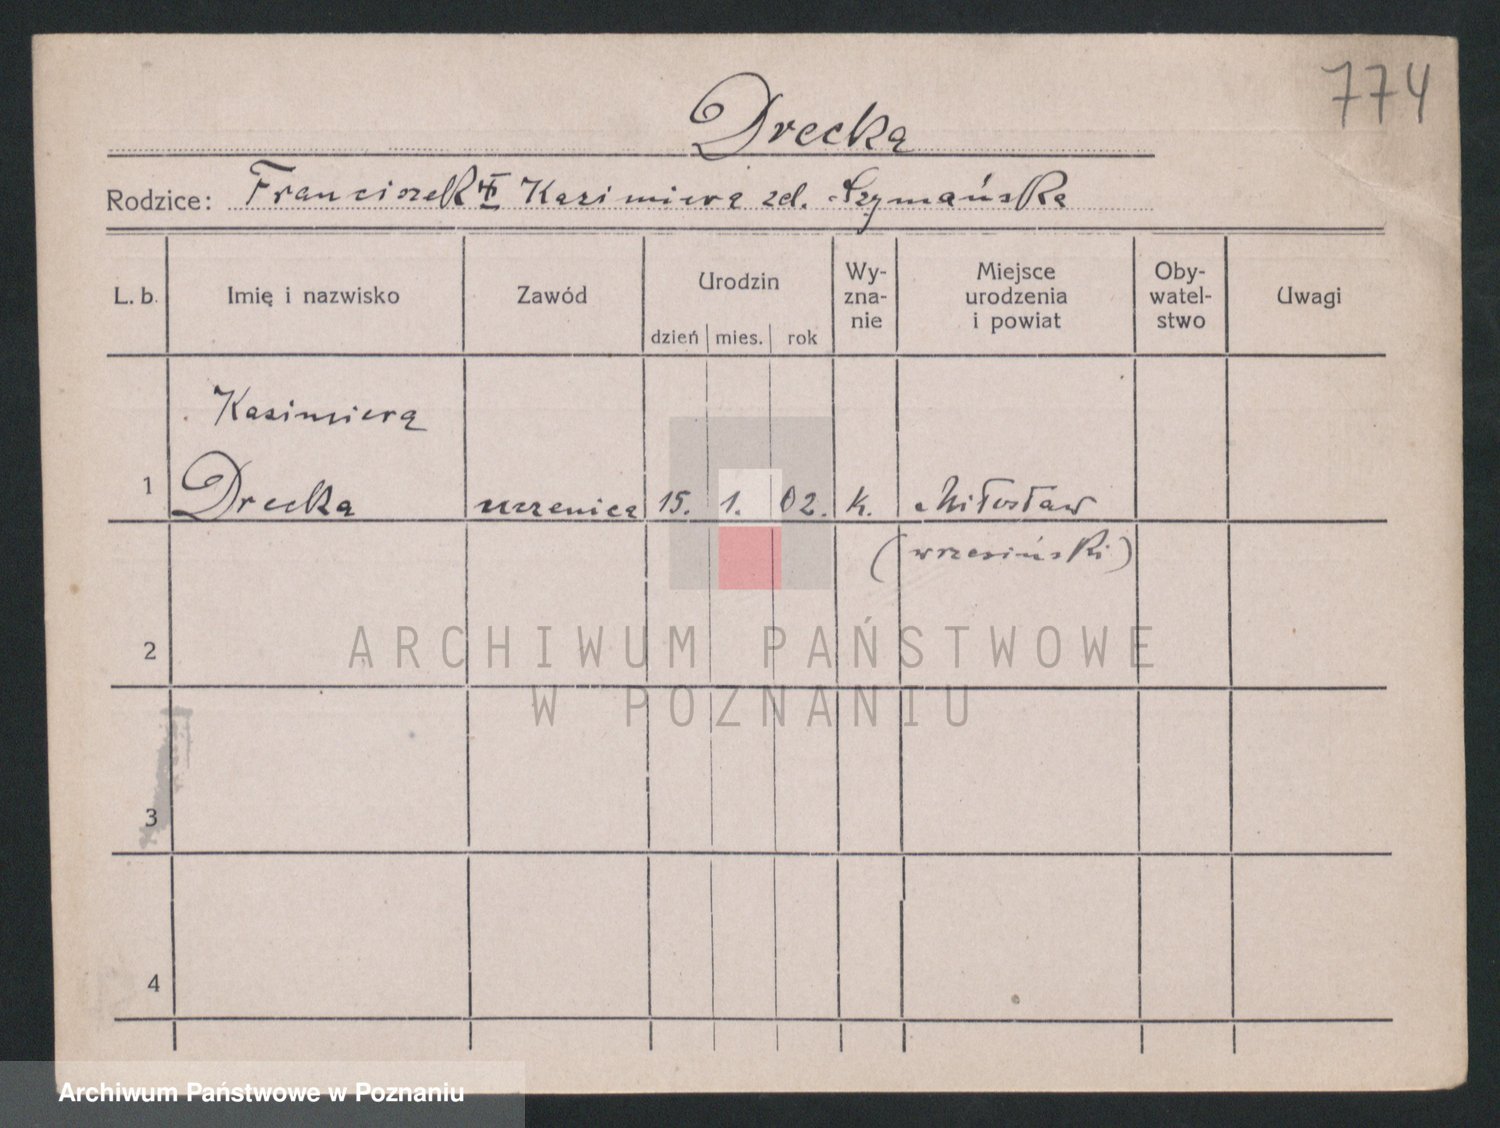 774
Drecka
Rodzice: Franciszek Kazimiera zd. Szymańska
L. b. Imię i nazwisko Zawód Urodzin Wy-zna-nie Miejsce urodzenia i powiat Oby-watel-stwo Uwagi
dzień mies. rok
Kazimiera
1 Drecka uczenica 15. 1. 02. k. Miłosław
(wrzesiński)
2
ARCHIWUM PAŃSTWOWE
W POZNANIU
3
4
Archiwum Państwowe w Poznaniu